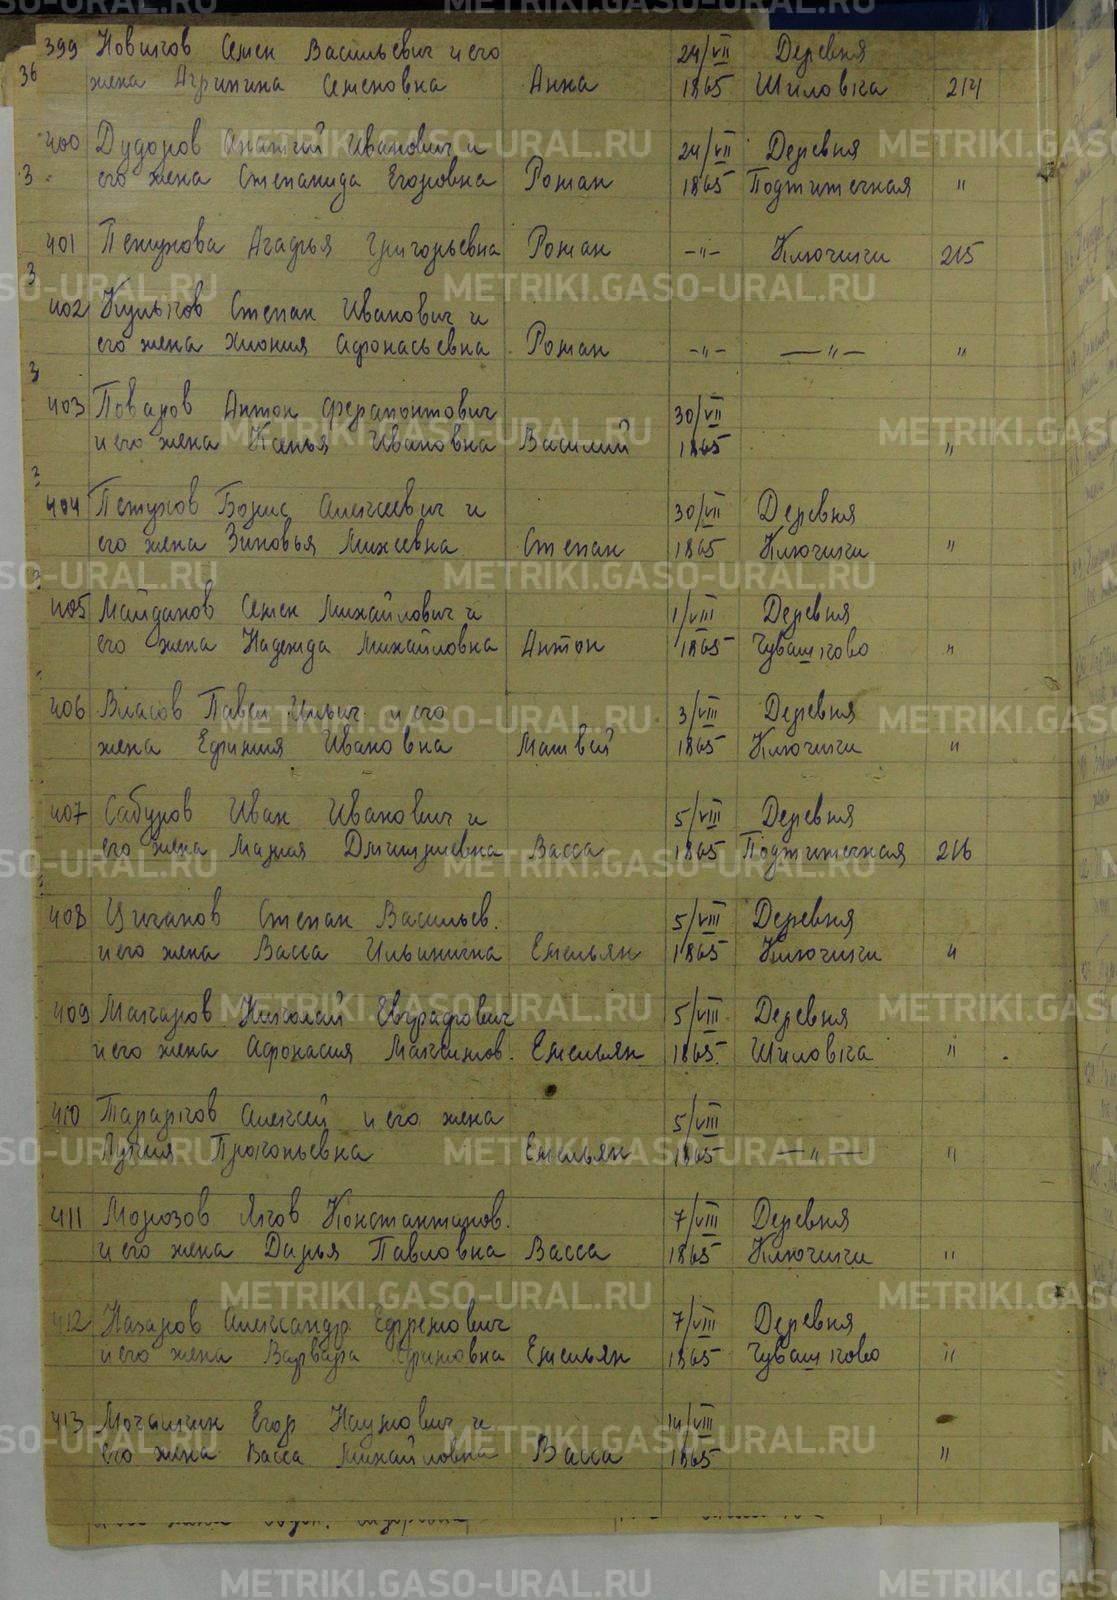 399 Новиков Семен Васильевич и его 24/VII Деревня
36 жена Агрипина Семеновна Анна 1865 Шиловка 214
400 Дудоров Иванович и 24/VII Деревня
3 его жена Степанида Егоровна Роман 1865 Подтимечная "
401 Петухова Агафья Григорьевна Роман -"- Ключики 215
3
402 Куликов Степан Иванович и
его жена Хиония Афонасьевна Роман -"- —"— "
3
403 Поваров Антон Ферапонтович 30/VII
и его жена Ивановна Василий 1865 "
3
404 Петухов Борис Алексеевич и 30/VII Деревня
его жена Зиновья Михеевна Степан 1865 Ключики "
3
405 Майданов Семен Михайлович и 1/VIII Деревня
его жена Надежда Михайловна Антон 1865 Чувашково "
406 Власов Павел Ильич и его 3/VIII Деревня
жена Ефимия Ивановна Матвей 1865 Ключики "
407 Сабуров Иван Иванович и 5/VIII Деревня
его жена Мария Дмитриевна Васса 1865 Подтимечная 216
408 Циганов Степан Васильев. 5/VIII Деревня
и его жена Васса Ильинична Емельян 1865 Ключики "
409 Макаров Николай Евграфович 5/VIII Деревня
и его жена Афонасия Максимов. Емельян 1865 Шиловка "
410 Тараков Алексей и его жена 5/VIII
Лукия Прокопьевна Емельян 1865 —"— "
411 Морозов Яков Константинов. 7/VIII Деревня
и его жена Дарья Павловна Васса 1865 Ключики "
412 Назаров Александр Ефремович 7/VIII Деревня
и его жена Варвара Ефимовна Емельян 1865 Чувашково "
413 Мочалкин Егор Наумович и 14/VIII
его жена Васса Михайловна Васса 1865 "
METRIKI.GASO-URAL.RU